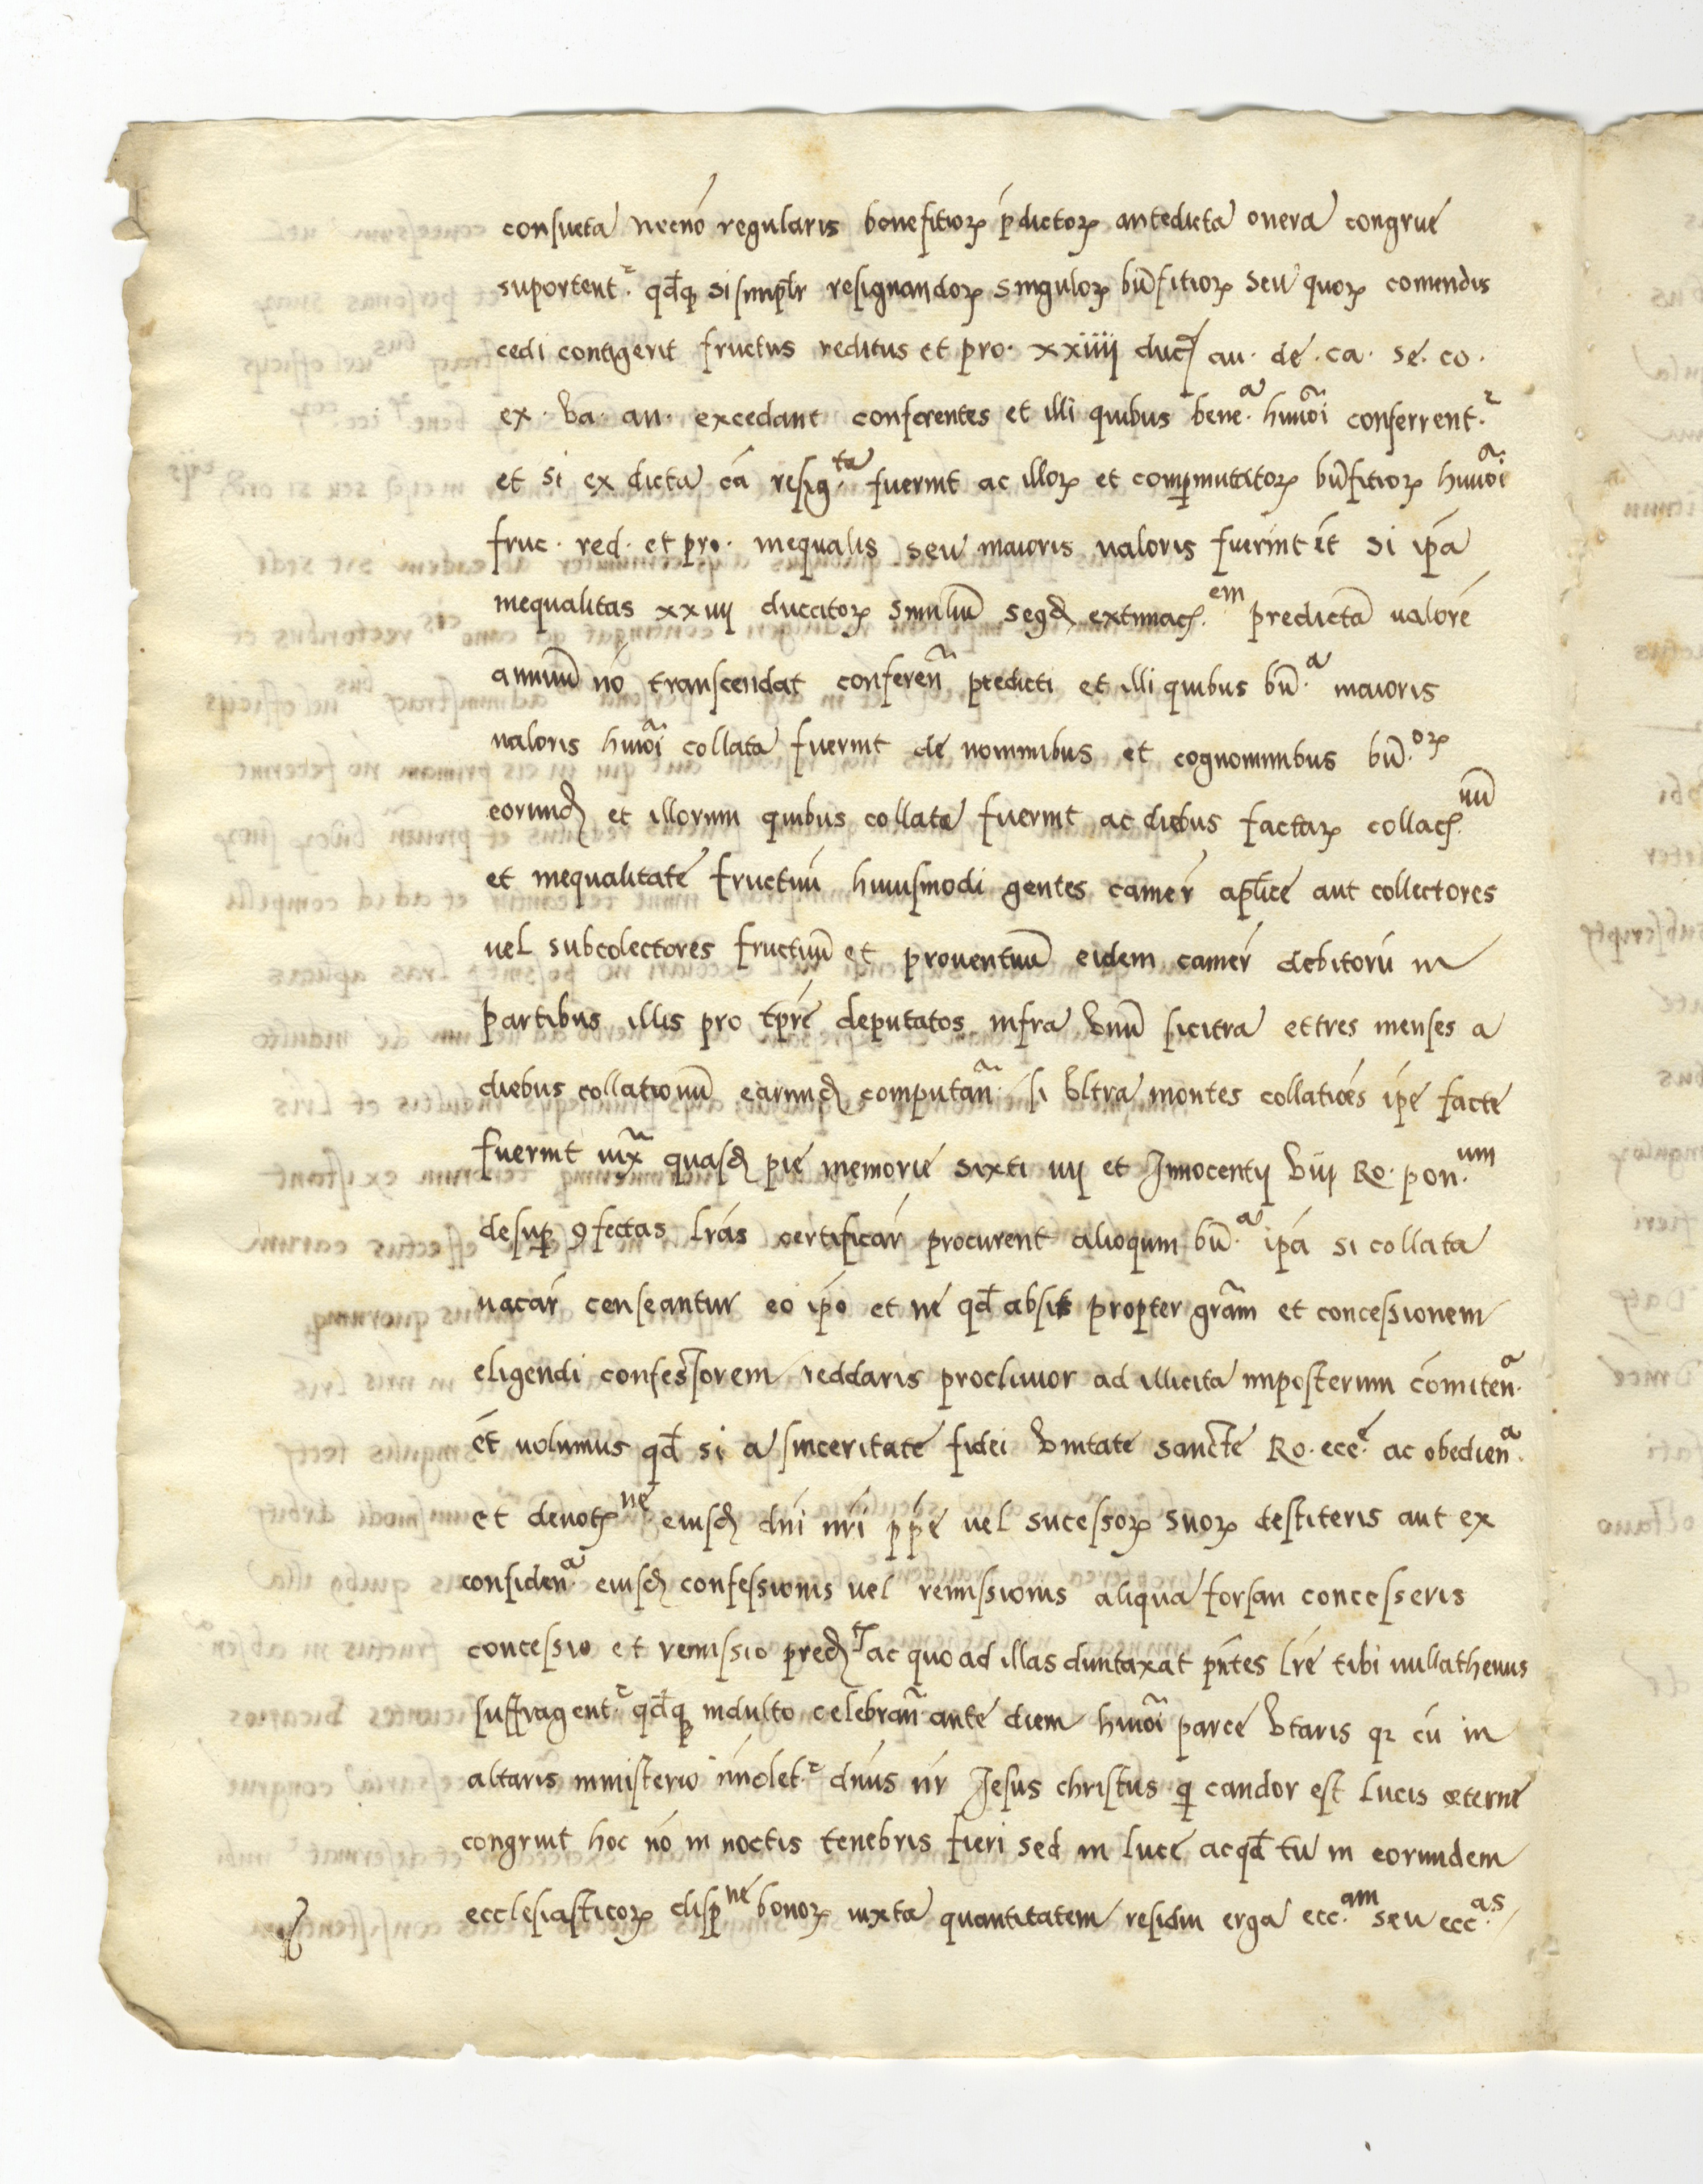 consueta necnō regularis benefitioꝝ p̄dictoꝝ antedicta onera congrue
suportentᵉ. qđꝗ si simpłr resignandoꝝ singuloꝝ bn̄fitioꝝ seu quoꝝ comendis
cedi contigerit fructus reditus et pro. xxiiij duc̄ au. de. ca. se. co.
ex. va. an. excedant conferentes et illi quibus bene.ᵃ hm̄oi conferrent.ᵉ
et si ex dicta cā resig.ᵗᵃ fuerint ac illoꝝ et compermutatoꝝ bn̄fitioꝝ hmōi
fruc. red. et pro. inequalis seu maioris valoris fuerint ēt si ip̄a
inequalitas xxiiij ducatoꝝ similiū segđ extimac̄.ᵉᵐ predictā valorē
annuū nō transcendat conferen̄ predicti et illi quibus bn̄.ᵃ maioris
valoris hmōi collata fuerint de nominibus et cognominibus bn̄.ᵒꝝ
eorunđ et illorum quibus collata fuerint ac diebus factaꝝ collac̄.ⁿᵘ̄
et inequalitatē fructuū huiusmodi gentes camer̄ ap̄lice aut collectores
vel subcolectores fructuū et proventuū eidem camer̄ debitorū in
partibus illis pro tp̄re deputatos infra vnū si citra et tres menses a
diebus collationū earunđ computan̄. si vltra montes collatiōes ip̄e facte
fuerint iux̄ quasđ pie memorie Sixti iiij et Innocentij viij Ro. pon.ᵘᵐ
desuꝑ ꝯfectas lr̄as certificar̄ procurent alioquin bn̄.ᵃ ip̄a si collata
vacar̄ censeantur eo ip̄o et ne qđ absit propter gr̄am et concessionem
eligendi confessorem reddaris proclivior ad illicita imposterum cōmiten̄.
ēt volumus qđ si a sinceritate fidei vnitate sancte Ro. ecc.ᵉ ac obedien.ᵃ
et devot̄ⁿᵉ eiusđ dn̄i nr̄i pp̄e vel sucessoꝝ suoꝝ destiteris aut ex
confiden.ᵃ eiusđ confessionis vel remissionis aliqua forsan concesseris
concessio et remissio pređ ac quo ad illas duntaxat pn̄tes lr̄e tibi nullathenus
suffragent.ᵉ qđꝗ indulto celebran̄ ante diem hmōi parce vtaris qꝛ cū in
altaris ministerio īmolet.ᵉ dn̄us nr̄ Jesus christus ꝗ candor est lucis eterne
congruit hoc nō in noctis tenebris fieri sed in luce ac qđ tu in eorundem
ecclesiasticoꝝ disp̄ⁿᵉ bonoꝝ iuxta quantitatem residui erga ecc.ᵃᵐ seu ecc.ᵃˢ